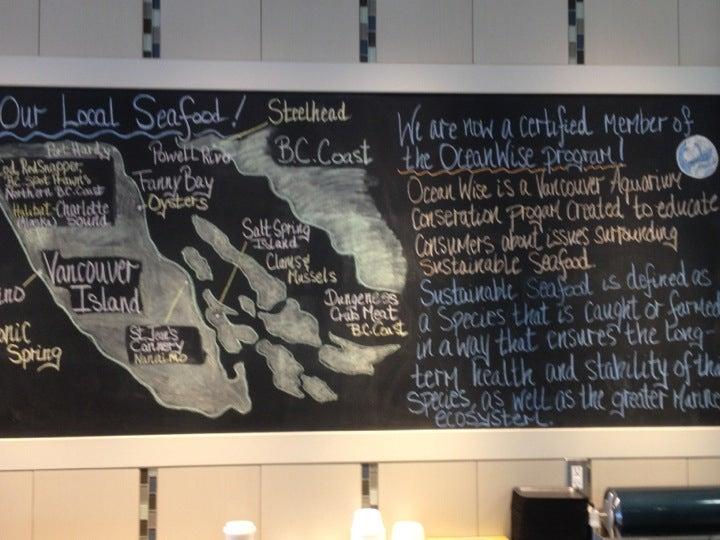 Our Local Seafood!
Steelhead
B.C. Coast
Port Hardy
Cod, Red Snapper,
Northern B.C. Coast
Halibut - Charlotte
(Alaska) Sound
Powell River
Fanny Bay
Oysters
Salt Spring
Island
Clams &
Mussels
Vancouver
Island
ino
onic
Spring
St. Jean's
Cannery
Nanaimo
Dungeness
Crab Meat
B.C. Coast
We are now a certified member of
the OceanWise program!
Ocean Wise is a Vancouver Aquarium
Conseration progam created to educate
Consumers about issues surrounding
sustainable seafood.
Sustainable seafood is defined as
a species that is caught or farmed
in a way that ensures the long-
term health and stability of tha
species, as well as the greater Marine
ecosystem.